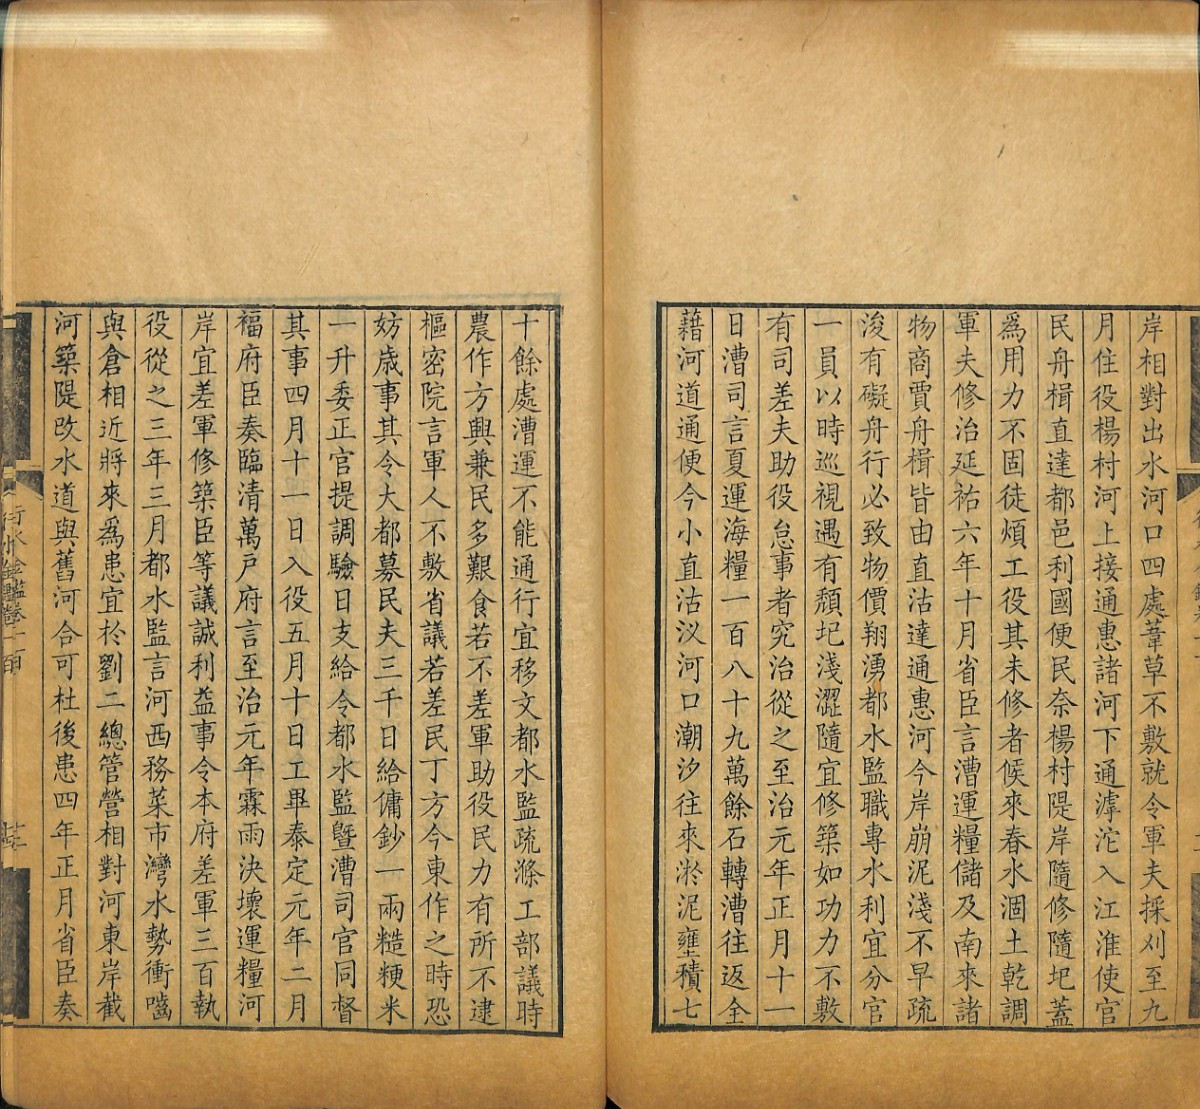 岸相對出水河口四處葦草不敷就令軍夫採刈至九
月住役楊村河上接通惠諸河下通滹沱入江淮使官
民舟楫直達都邑利國便民奈楊村隄岸隨修隨圯蓋
爲用力不固徒煩工役其未修者候來春水涸土乾調
軍夫修治延祐六年十月省臣言漕運糧儲及南來諸
物商賈舟楫皆由直沽達通惠河今岸崩泥淺不早疏
浚有礙舟行必致物價翔湧都水監職專水利宜分官
一員以時巡視遇有頹圯淺澀隨宜修築如功力不敷
有司差夫助役怠事者究治從之至治元年正月十一
日漕司言夏運海糧一百八十九萬餘石轉漕往返全
藉河道通便今小直沽汊河口潮汐往來淤泥壅積七
十餘處漕運不能通行宜移文都水監疏滌工部議時
農作方興兼民多艱食若不差軍助役民力有所不逮
樞密院言軍人不敷省議若差民丁方今東作之時恐
妨歲事其令大都募民夫三千日給傭鈔一兩糙粳米
一升委正官提調驗日支給令都水監暨漕司官同督
其事四月十一日入役五月十日工畢泰定元年二月
福府臣奏臨清萬戶府言至治元年霖雨決壞運糧河
岸宜差軍修築臣等議誠利益事令本府差軍三百執
役從之三年三月都水監言河西務菜市灣水勢衝嚙
與倉相近將來爲患宜於劉二總管營相對河東岸截
河築隄改水道與舊河合可杜後患四年正月省臣奏